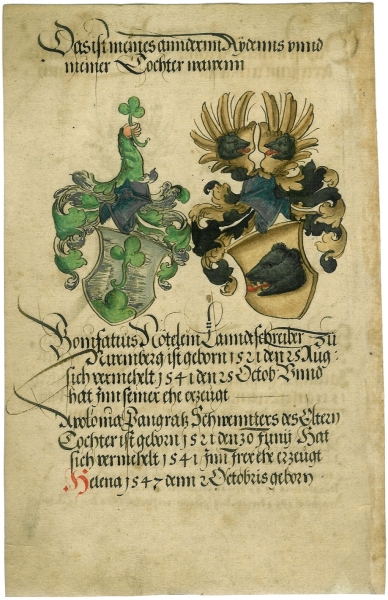 Das ist meines annderen Aydenns vnnd
meiner Tochter wapenn
Bonifatius Nötelein Lanndtschreiber Zu
Nuremberg ist geborn 1521 den 25 Aug-
sich vermehelt 1541 den 25 Octob Vnnd
hat jnn seiner ehe erzeugt
Apolonia Pangratz Schwennters des Eltern
Tochter ist geborn 1521 den 30 Junij Hat
sich vermehelt 1541 jnn jrer ehe erzeugt
Helena 1547 denn 2 Octobris geborn